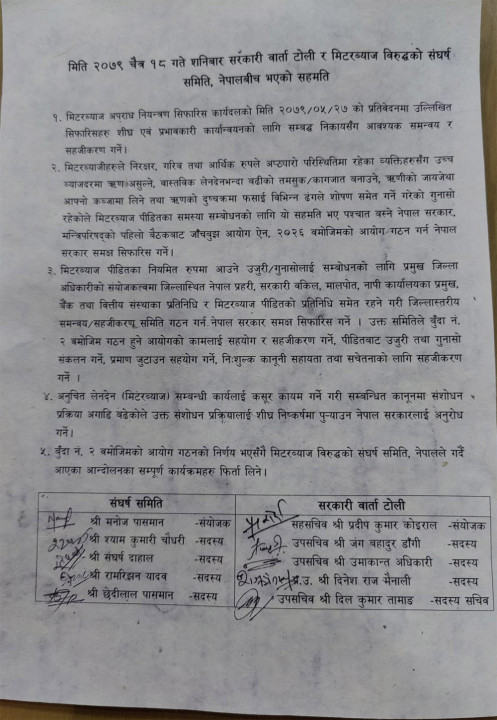 मिति २०७९ चैत्र १८ गते शनिबार सरकारी वार्ता टोली र मिटरब्याज विरुद्धको संघर्ष
समिति, नेपालबीच भएको सहमति
१. मिटरब्याज अपराध नियन्त्रण सिफारिस कार्यदलको मिति २०७९/०५/२७ को प्रतिवेदनमा उल्लिखित
सिफारिसहरु शीघ्र एवं प्रभावकारी कार्यान्वयनको लागि सम्बद्ध निकायसँग आवश्यक समन्वय र
सहजीकरण गर्ने।
२. मिटरब्याजीहरुले निरक्षर, गरिब तथा आर्थिक रुपले अप्ठ्यारो परिस्थितिमा रहेका व्यक्तिहरुसँग उच्च
ब्याजदरमा ऋण असुल्ने, वास्तविक लेनदेनभन्दा बढीको तमसुक/कागजात बनाउने, ऋणीको जायजेथा
आफ्नो कब्जामा लिने तथा ऋणको दुष्चक्रमा फसाई विभिन्न ढंगले शोषण समेत गर्ने गरेको गुनासो
रहेकोले मिटरब्याज पीडितका समस्या सम्बोधनको लागि यो सहमति भए पश्चात बस्ने नेपाल सरकार,
मन्त्रिपरिषद्को पहिलो बैठकबाट जाँचबुझ आयोग ऐन, २०२६ बमोजिमको आयोग गठन गर्न नेपाल
सरकार समक्ष सिफारिस गर्ने।
३. मिटरब्याज पीडितका नियमित रुपमा आउने उजुरी/गुनासोलाई सम्बोधनको लागि प्रमुख जिल्ला
अधिकारीको संयोजकत्वमा जिल्लास्थित नेपाल प्रहरी, सरकारी वकिल, मालपोत, नापी कार्यालयका प्रमुख,
बैंक तथा वित्तीय संस्थाका प्रतिनिधि र मिटरब्याज पीडितको प्रतिनिधि समेत रहने गरी जिल्लास्तरीय
समन्वय/सहजीकरण समिति गठन गर्न नेपाल सरकार समक्ष सिफारिस गर्ने । उक्त समितिले बुँदा नं.
२ बमोजिम गठन हुने आयोगको कामलाई सहयोग र सहजीकरण गर्ने, पीडितबाट उजुरी तथा गुनासो
संकलन गर्ने, प्रमाण जुटाउन सहयोग गर्ने, निःशुल्क कानूनी सहायता तथा सचेतनाको लागि सहजीकरण
गर्ने ।
४. अनुचित लेनदेन (मिटरब्याज) सम्बन्धी कार्यलाई कसूर कायम गर्ने गरी सम्बन्धित कानूनमा संशोधन
प्रक्रिया अगाडि बढेकोले उक्त संशोधन प्रक्रियालाई शीघ्र निष्कर्षमा पुऱ्याउन नेपाल सरकारलाई अनुरोध
गर्ने।
५. बुँदा नं. २ बमोजिमको आयोग गठनको निर्णय भएसँगै मिटरब्याज विरुद्धको संघर्ष समिति, नेपालले गर्दै
आएका आन्दोलनका सम्पूर्ण कार्यक्रमहरु फिर्ता लिने।
संघर्ष समिति
श्री मनोज पासमान -संयोजक
श्री श्याम कुमारी चौधरी -सदस्य
श्री संघर्ष दाहाल -सदस्य
श्री रामरिझन यादव -सदस्य
श्री छेदीलाल पासमान -सदस्य
सरकारी वार्ता टोली
सहसचिव श्री प्रदीप कुमार कोइराला -संयोजक
उपसचिव श्री जंग बहादुर डाँगी -सदस्य
उपसचिव श्री उमाकान्त अधिकारी -सदस्य
प्र.उ. श्री दिनेश राज मैनाली -सदस्य
उपसचिव श्री दिल कुमार तामाङ -सदस्य सचिव